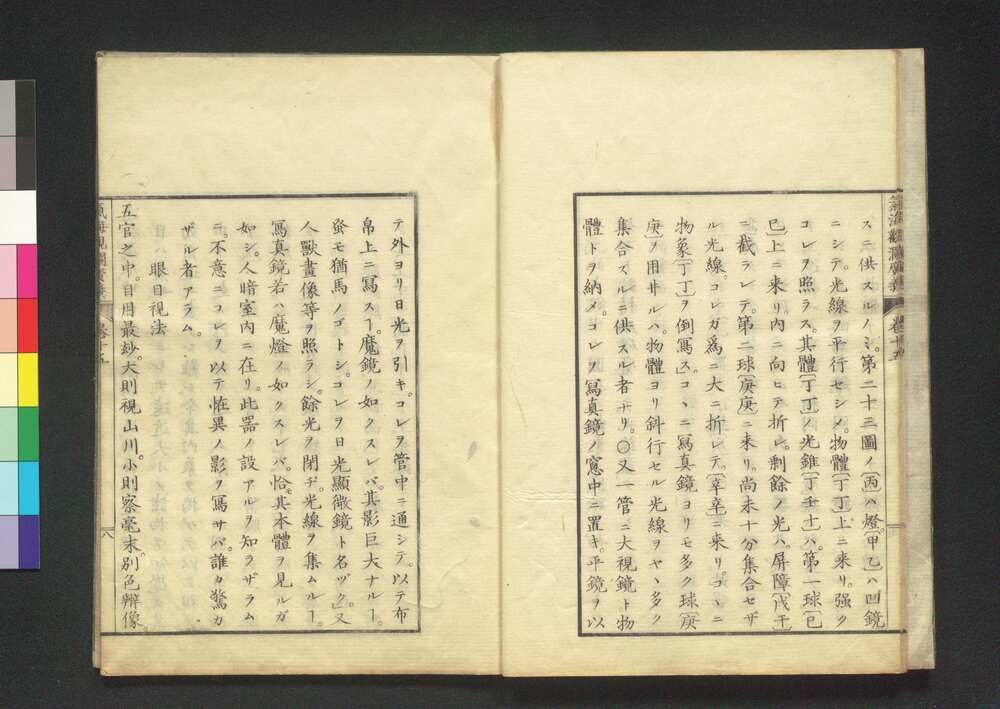 氣海觀瀾廣義 卷十五
スニ供スルノミ。第二十三圖ノ〔丙〕ハ燈〔甲乙〕ハ凹鏡
ニシテ。光線ヲ平行セシメ。物體〔丁丁〕上ニ來リ。强ク
コレヲ照ラス。其體〔丁丁〕ノ光錐〔丁壬壬〕ハ。第一球〔己
己〕上ニ來リ。内ニ向ヒテ折レ。剩餘ノ光ハ。屏障〔戊壬〕
ニ截ラレテ。第二球〔庚庚〕ニ來リ。尚未十分集合セザ
ル光線。コレガ爲ニ大ニ折レテ。〔辛辛〕ニ來リ。コヽニ
物象〔丁丁〕ヲ倒寫ス。コヽニ寫真鏡ヨリモ多ク球〔庚
庚〕ヲ用井ルハ。物體ヨリ斜行セル光線ヲヤヽ多ク
集合スルニ供スル者ナリ。〇又一管ニ大視鏡ト物
體トヲ納メ。コレヲ寫真鏡ノ窻中ニ置キ。平鏡ヲ以
テ外ヨリ日光ヲ引キ。コレヲ管中ニ通シテ。以テ布
帛上ニ寫スヿ。魔鏡ノ如クスレバ。其影巨大ナルヿ。
蚤モ猶馬ノゴトシ。コレヲ日光顯微鏡ト名ヅク。又
人獸畫像等ヲ照ラシ餘光ヲ閉ヂ。光線ヲ集ムルヿ。
寫真鏡若ハ魔燈ノ如クスレバ。恰モ其本體ヲ見ルガ
如シ。人暗室内ニ在リ。此器ノ設アルヲ知ラザラム
ニ。不意ニコレヲ以テ恠異ノ影ヲ寫サバ。誰カ驚カ
ザル者アラム。
眼目視法
五官之中。目用最玅。大則視山川。小則察毫末。別色辨像。
氣海觀瀾廣義 卷十五 八